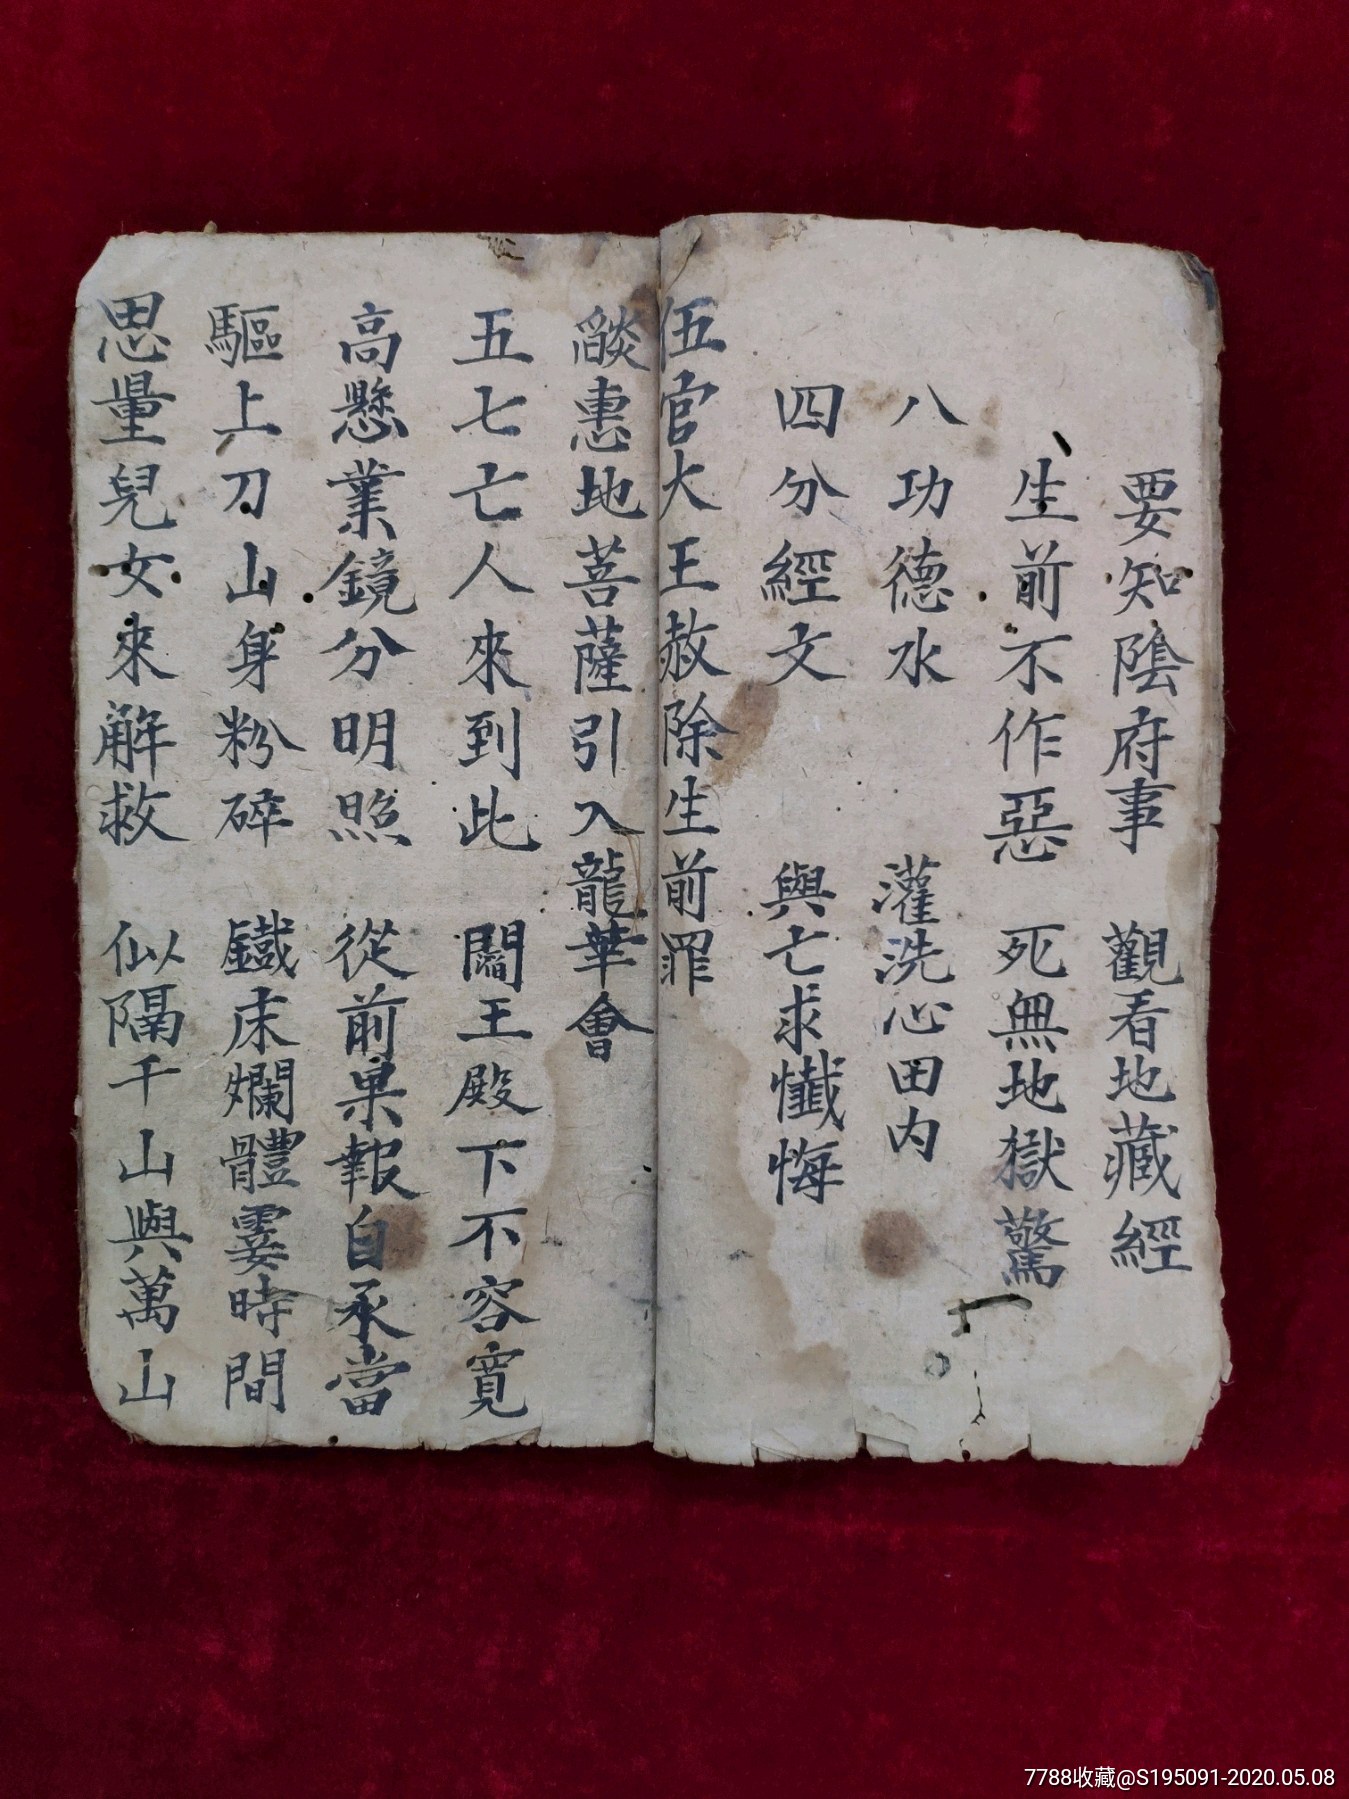 要知陰府事　觀看地藏經
生前不作惡　死無地獄驚
八功德水　灌洗心田內
四分經文　與亡求懺悔
伍官大王赦除生前罪
燄惠地菩薩引入龍華會
五七亡人來到此　閻王殿下不容寬
高懸業鏡分明照　從前果報自承當
驅上刀山身粉碎　鐵床爛體霎時間
思量兒女來解救　似隔千山與萬山
7788收藏@S195091-2020.05.08